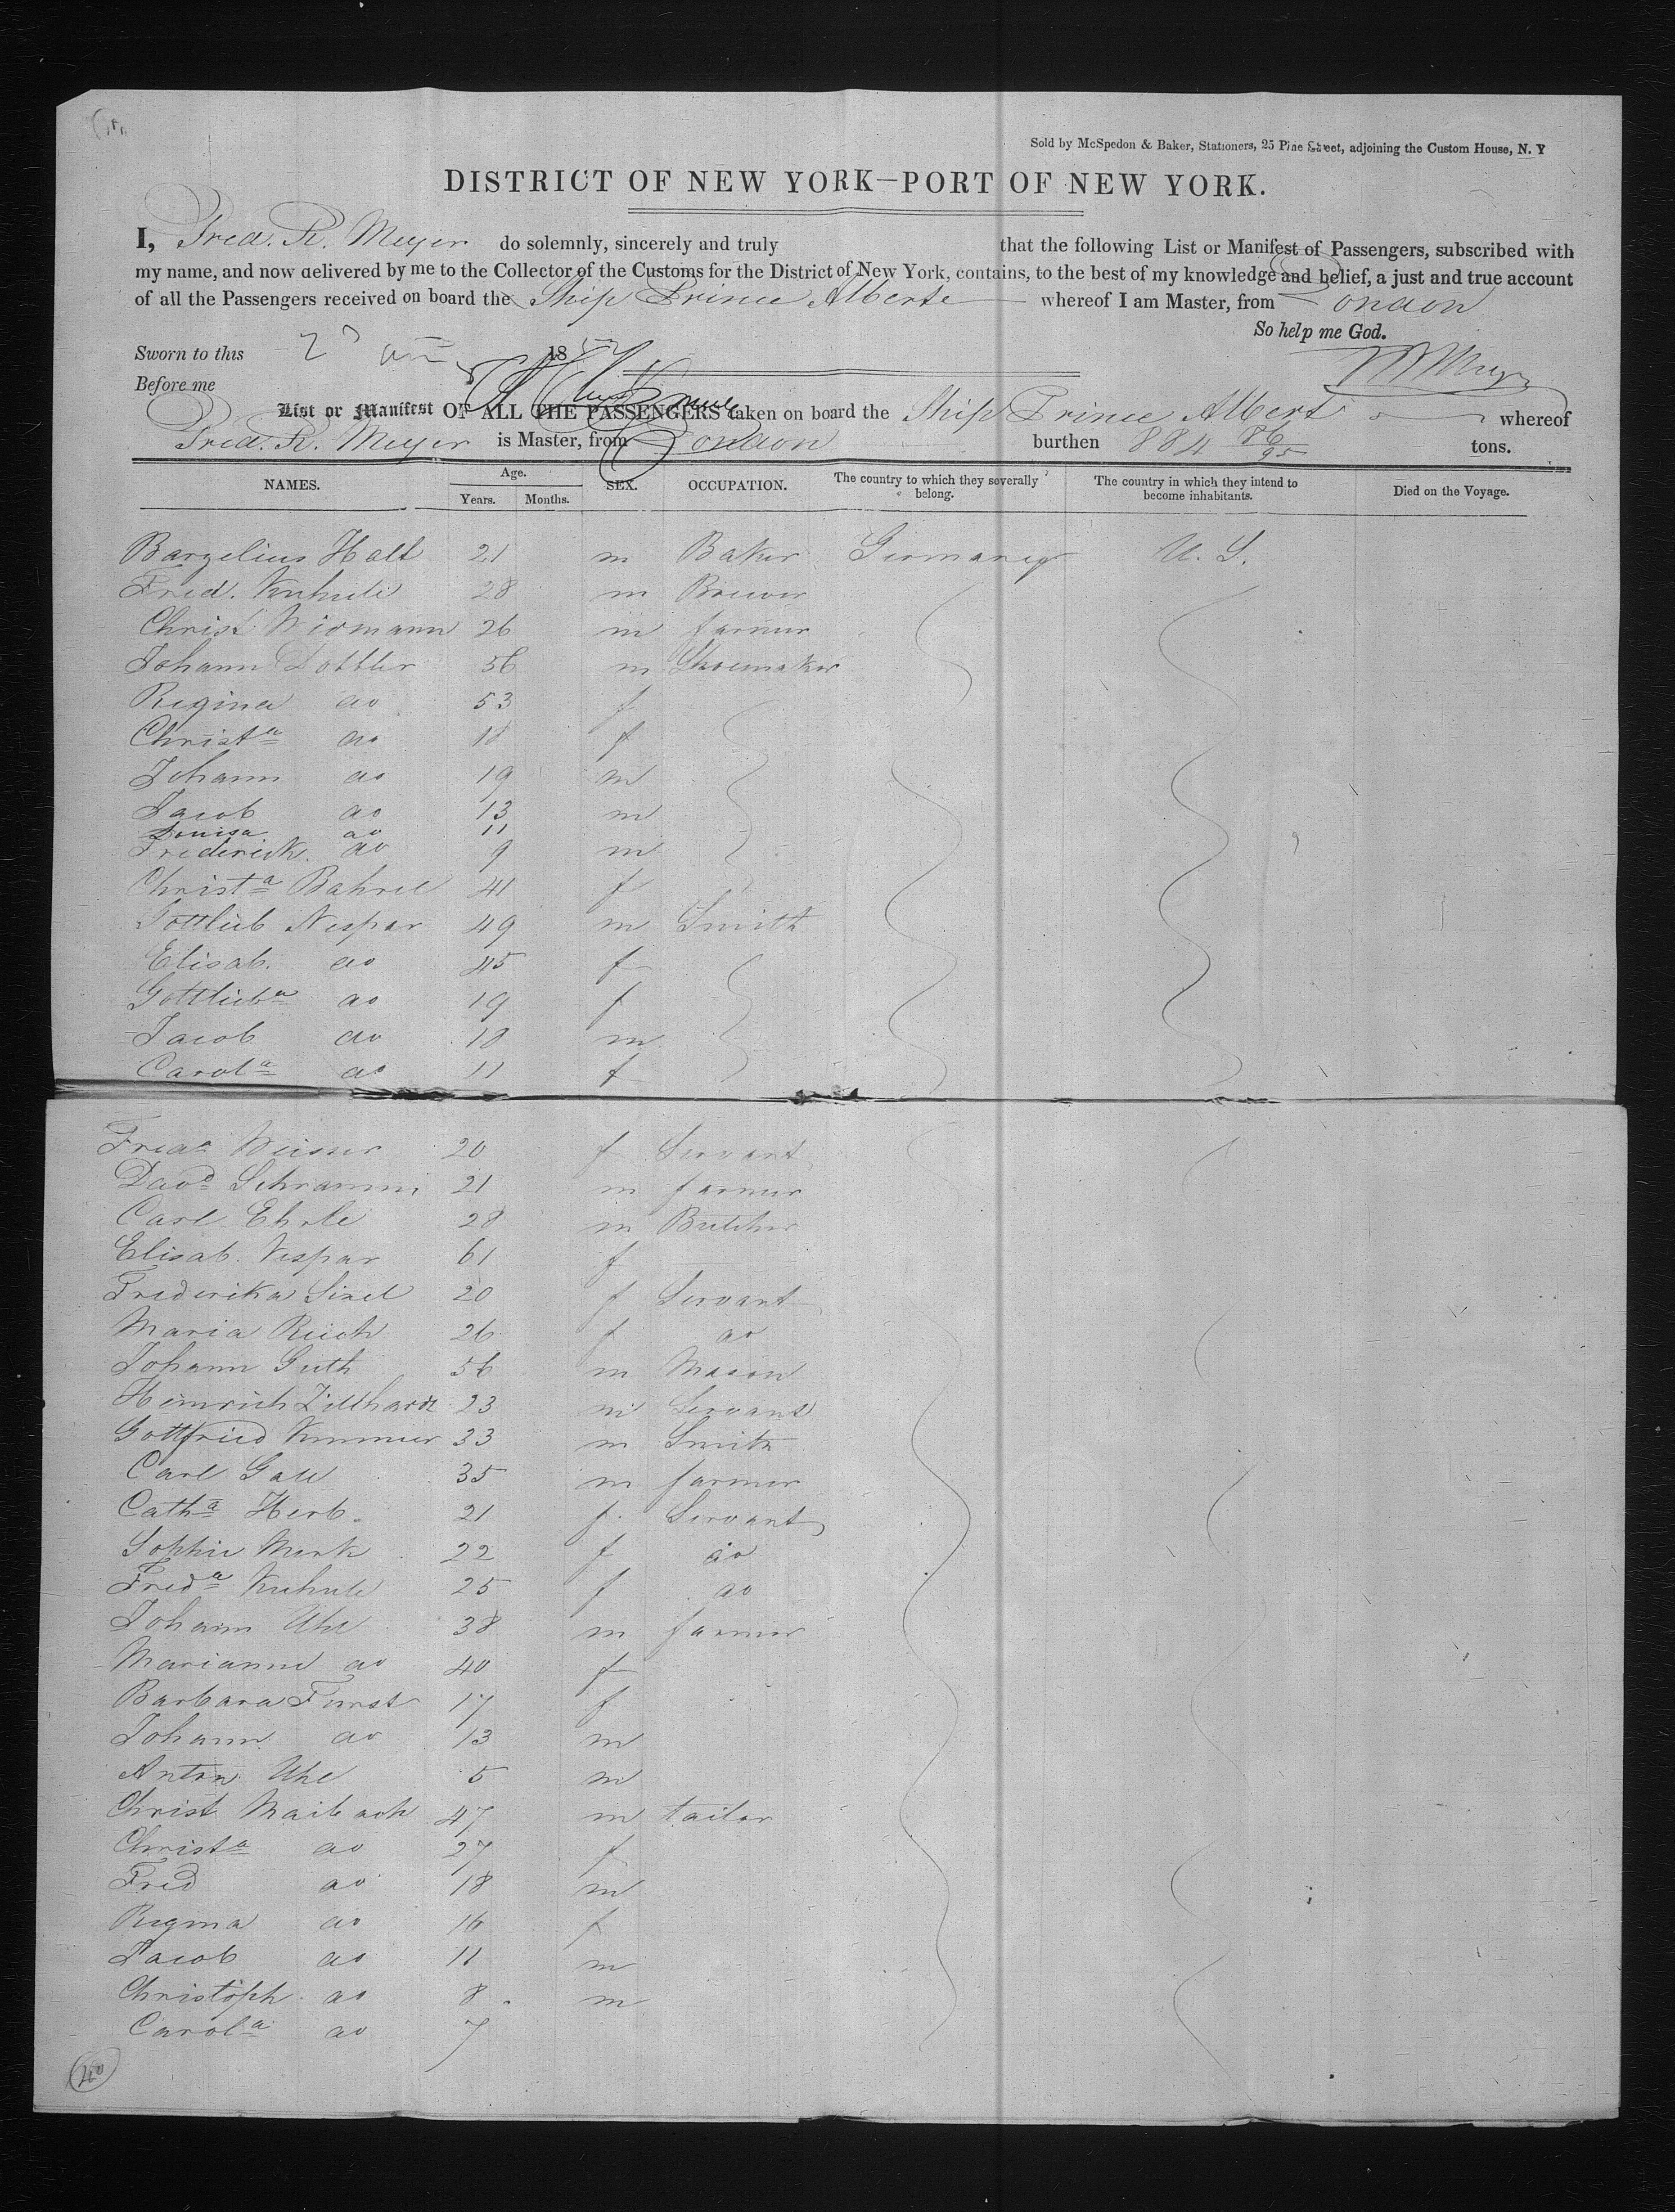 Sold by McSpedon & Baker, Stationers, 25 Pine Street, adjoining the Custom House, N. Y
DISTRICT OF NEW YORK—PORT OF NEW YORK.
I, Fred. R. Meyer do solemnly, sincerely and truly that the following List or Manifest of Passengers, subscribed with
my name, and now delivered by me to the Collector of the Customs for the District of New York, contains, to the best of my knowledge and belief, a just and true account
of all the Passengers received on board the Ship Prince Alberte whereof I am Master, from London
So help me God.
Sworn to this 18
Before me
List or Manifest OF ALL THE PASSENGERS taken on board the Ship Prince Albert whereof
Fred. R. Meyer is Master, from London burthen 884 86/95 tons.
NAMES. Age. Years. Months. SEX. OCCUPATION. The country to which they severally belong. The country in which they intend to become inhabitants. Died on the Voyage.
Barzelius Halt 21 m Baker Germany U. S.
Fred. Kuhnle 28 m Brewer
Christ. Widmann 26 m farmer
Johann Dottler 56 m Shoemaker
Regina do 53 f
Christa do 18 f
Johann do 19 m
Jacob do 13 m
Louisa do 11
Frederick do 9 m
Christa Bahrel 41 f
Gottlieb Vespar 49 m Smith
Elisab. do 45 f
Gottlieba do 19 f
Jacob do 18 m
Carola do 11 f
Freda Weisser 20 f Servant
Davd Schramm 21 m farmer
Carl Ehrle 28 m Butcher
Elisab. Vespar 61 f
Frederika Sixel 20 f Servant
Maria Rusch 26 f do
Johann Guth 56 m Mason
Heinrich Zillhardt 23 m Servant
Gottfried Kummer 33 m Smith
Carl Gall 35 m farmer
Catha Herb. 21 f Servant
Sophie Merk 22 f do
Freda Kuhnle 25 f do
Johann Uhl 38 m farmer
Marianne do 40 f
Barbara Furst 17 f
Johann do 13 m
Anton Uhl 5 m
Christ Maibach 47 m tailor
Christa do 27 f
Fred do 18 m
Regina do 16 f
Jacob do 11 m
Christoph do 8 m
Carola do 7
40